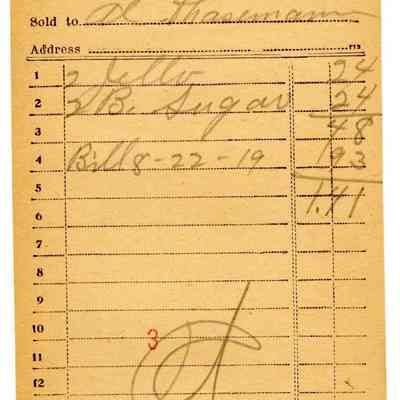 Sold to H Thasemann
Address
1 2 Jello 24
2 2 B. Sugar 24
3 48
4 Bill 8-22-19 93
5 1.41
6
7
8
9
10 3
11
12